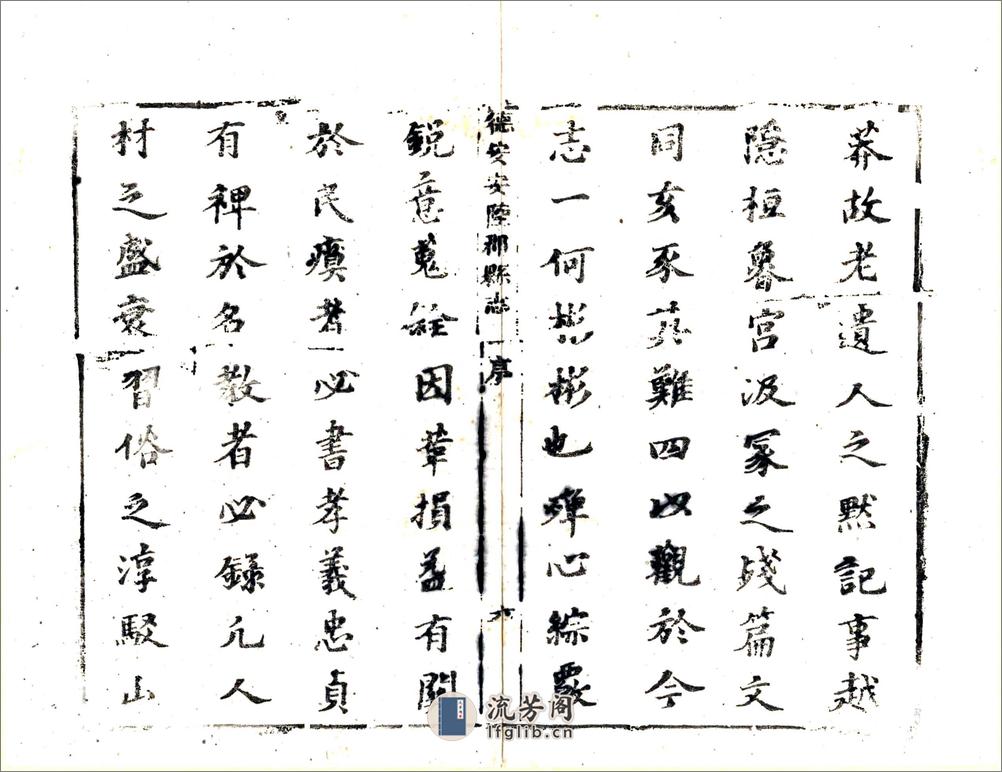 莽故老遺人之黙記事越
隠桓魯宫汲冢之残篇文
同亥豕其難四以觀於今
志一何彬彬也殫心綜覈
德安安陸郡縣志 序 六
銳意蒐 因革損益有關
於民瘼者必書孝義忠貞
有裨於名教者必錄凢人
材之盛衰習俗之淳駁山
流芳阁
lfglib.cn